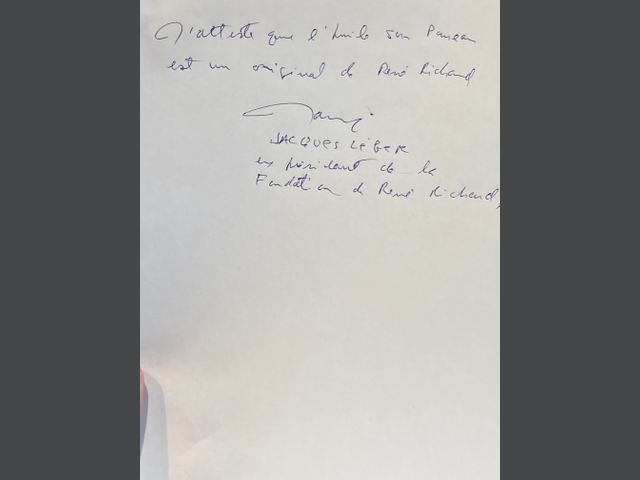 J'atteste que l'huile son Paneau
est un original de René Richard
JACQUES LÉGER
ex président de la
Fondation de René Richard,